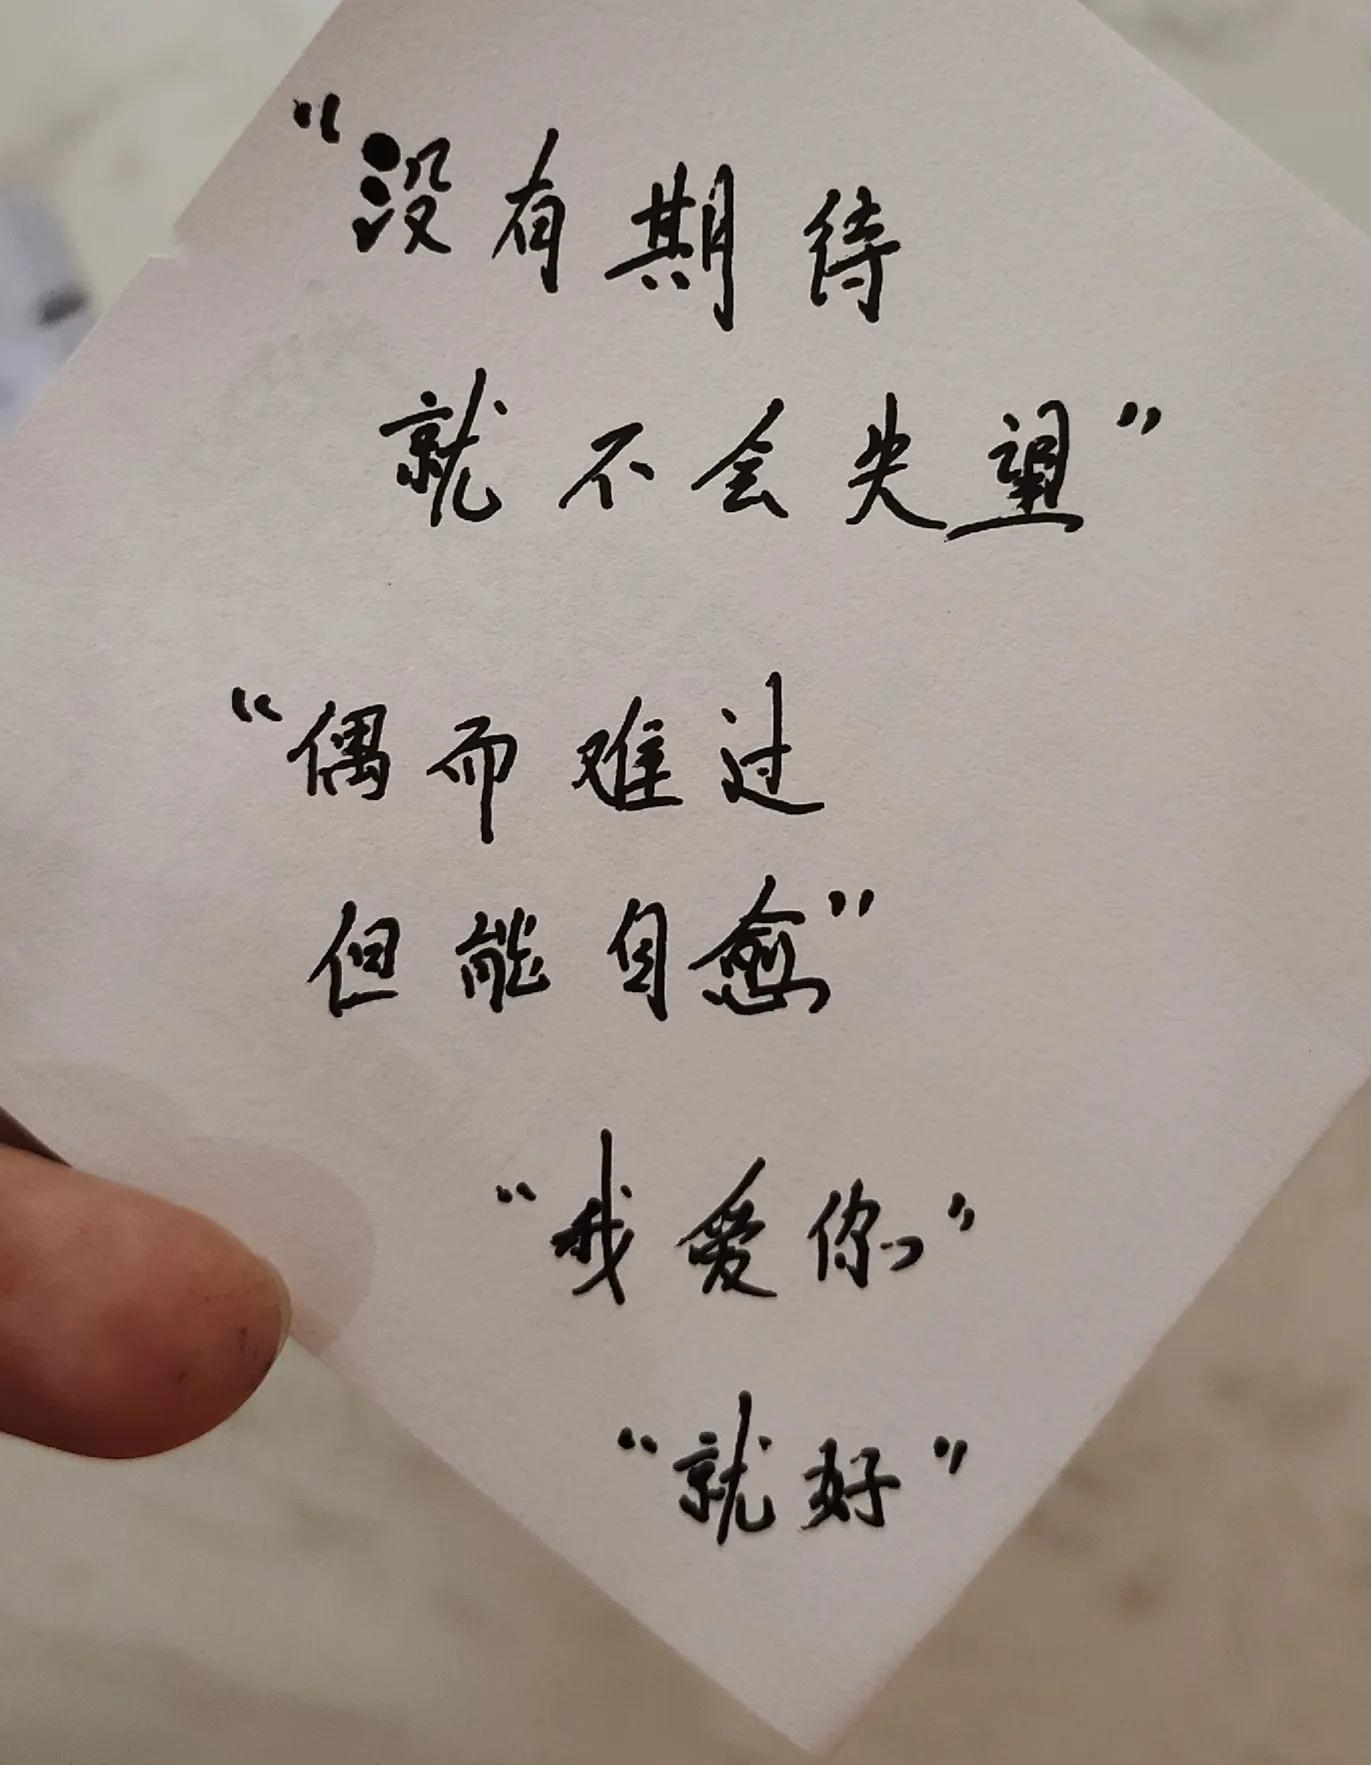 “没有期待
就不会失望”
“偶而难过
但能自愈”
“我爱你”
“就好”